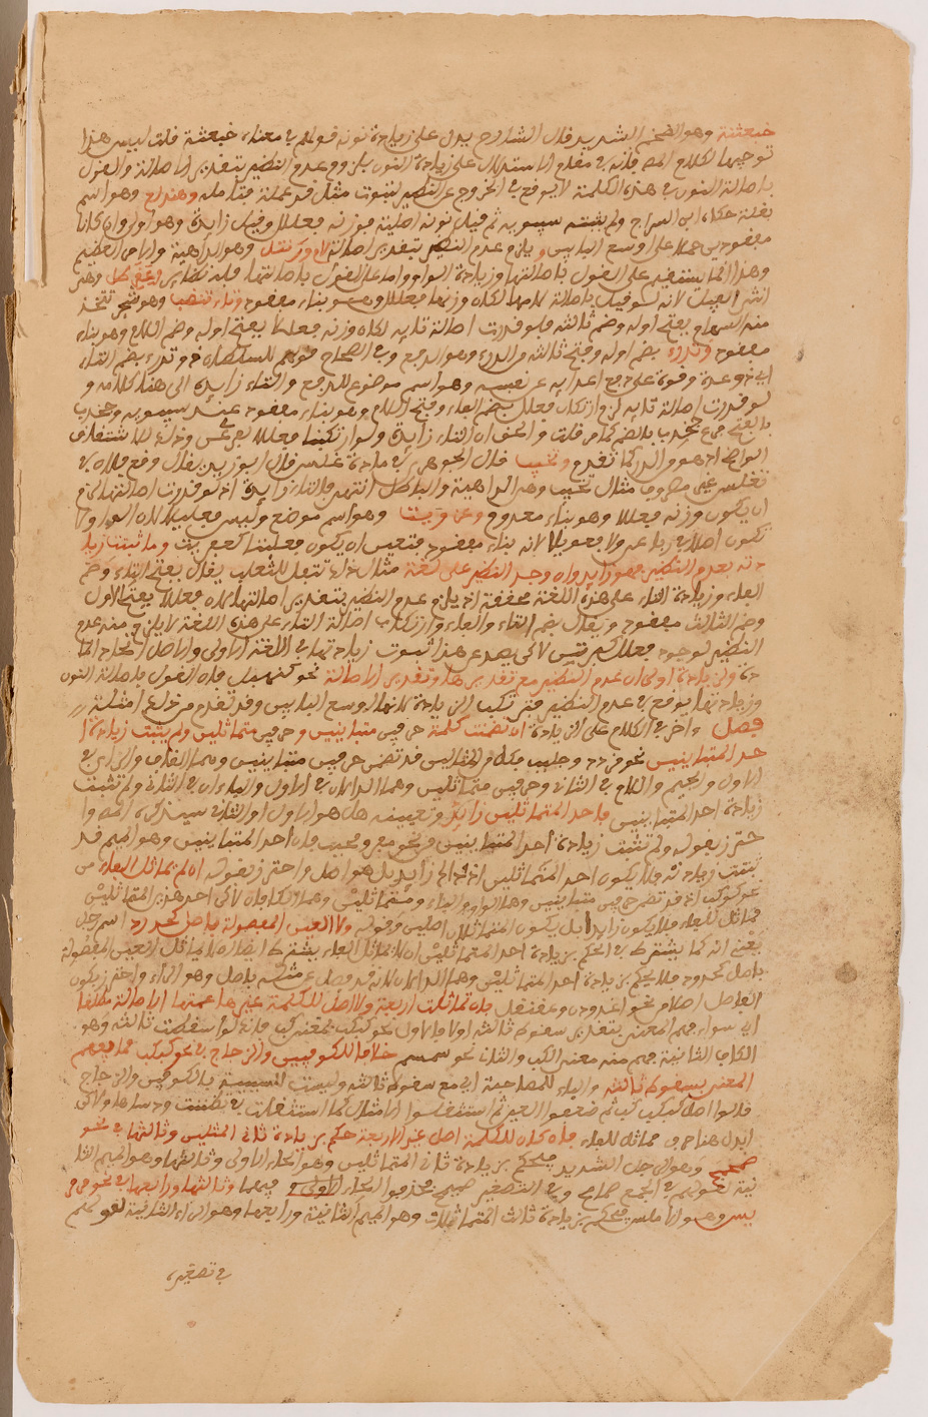 خبعثنة وهو الضخم الشديد قال الشارح يدل على زيادة نونه قولهم في معناه خبعثة قلت ليس هذا
توجيها لكلام المص فانه في مقام الاستدلال على زيادة النون بلزوم عدم النظير بتقدير الاصالة والقول
باصالة النون في هذه الكلمة لا يوقع في الخروج عن النظير لثبوت مثل قذعملة فتامله وهندلع وهو اسم
بقلة حكاه ابن السراج ولم يثبته سيبويه ثم قيل نونه اصلية فوزنه فعللل وقيل زايدة وهو اولى وان كانا
مفقودين حملا على اوسع البابين ويلزم عدم النظير بتقدير اصالة وهو الداهية والامر العظيم
وهذا انما يستقيم على القول باصالتها وزيادة الواو واما على القول باصالتها فله نظائر وهي
انثى الفيل لانه لو قيل باصالة لامها لكان وزنها فعللل وهو بناء مفقود وتاء تنضب وهو شجر تتخذ
منه السهام بفتح اوله وضم ثالثه فلو قدرت اصالة تايه لكان وزنه فعلل بفتح اوله وضم اللام وهو بناء
مفقود وتدرء بضم اوله وفتح ثالثه والدرء وهو الدفع وفي الصحاح قولهم للسلطان ذو تدرء بضم التاء
اي ذو عدة وقوة على دفع اعدايه عن نفسه وهو اسم موضوع للدفع والتاء زايدة الى هنا كلامه و
لو قدرت اصالة تايه لزم ارتكاب فعلل بضم الفاء وفتح اللام وهو بناء مفقود عند سيبويه وجخدب
بالفتح فرع جخدب بالضم كما مر قلت والحق ان التاء زايدة ولو ارتكبنا فعللا لغرض وذلك للاشتقاق
الواضح اذ هو والدرء كما تقدم وتخيب قال الجوهري في مادة غلس قال ابو زيد يقال وقع فلان في
تغلس غير مصروف مثال تخيب وهو الداهية والباطل انتهى فالتاء زايدة اذ لو قدرت اصالتها لزم
ان يكون وزنه فعلل وهو بناء معدوم وعزويت وهو اسم موضع وليس فعليلا لان الواو لا
تكون اصلا في رباعي ولا فعويلا لانه بناء مفقود فتعين ان يكون فعليتا كعفريت وما ثبتت زياد
ته بعدم النظير فهو زايد وان وجد النظير على لغة مثال ذلك تتفل للثعلب يقال بفتح التاء وضم
الفاء وزيادة التاء على هذه اللغة محققة اذ يلزم عدم النظير بتقدير اصالتها لان فعلل بفتح الاول
وضم الثالث مفقود ويقال بضم التاء والفاء وارتكاب اصالة التاء على هذه اللغة لا يلزم منه عدم
النظير لوجود فعلل كبرثن لاكن يصد عن هذا ثبوت زيادتها في اللغة الاولى والاصل اتحاد الما
دة والزيادة اولى ان عدم النظير مع تقديرها وتقدير الاصالة نحو كنهبل فان القول باصالة النون
وزيادتها يوقع في عدم النظير فترتكب الزيادة لانها اوسع البابين وقد تقدم من ذلك امثلة
فصل واخر في الكلام على الزيادة ان تضمنت كلمة حرفين متباينين وحرفين متماثلين ولم يثبت زيادة ا
حد المتباينين نحو قردد وجلبب فكل من المثالين قد تضمن حرفين متباينين وهما القاف والراء في
الاول والجيم واللام في الثاني وحرفين متماثلين وهما الدالان في الاول والباءان في الثاني ولم تثبت
زيادة احد المتباينين فاحد المتماثلين زايد وتعيينه هل هو الاول او الثاني سيذكره المص وا
حترز بقوله ولم تثبت زيادة احد المتباينين من نحو مفر ومحب فان احد المتباينين وهو الميم قد
ثبتت زيادته فلا يكون احد المتماثلين اذ ذاك زايد بل هو اصل واحترز بقوله ان لم تماثل الفاء من
نحو كوكب اذ قد تضمن حرفين متباينين وهما الواو والباء ومتماثلين وهما الكافان لاكن احد هذين المتماثلين
مماثل للفاء فلا يكون زايدا بل يكون المتماثلان اصلين وقوله ولا العين المفصولة باصل كحدرد اسم رجل
يعني انه كما يشترط في الحكم بزيادة احد المتماثلين ان لا تماثل الفاء يشترط ايضا ان لا يماثل العين المفصولة
باصل كحدرد فلا يحكم بزيادة احد المتماثلين وهما الدالان لانه قد فصل عن مثله باصل وهو الراء واحترز بكون
الفاصل اصلا من نحو اغدودن وعقنقل فان تماثلت اربعة ولا اصل للكلمة غيرها عمتها الاصالة مطلقا
اي سواء فهم المعنى بتقدير سقوط ثالثه اولا فالاول نحو كبكب بمعنى كب فانه لو اسقطت ثالثه وهو
الكاف الثانية فهم منه معنى الكب والثاني نحو سمسم خلافا للكوفيين والزجاج في نحو كبكب مما يفهم
المعنى بسقوط ثالثه والباء للمصاحبة اي مع سقوط ثالثه وليست للسببية فالكوفيون والزجاج
قالوا اصل كبكب كبب ثم ضعفوا العين ثم استثقلوا الامثال كما استثقلت في تظننت ودساها ولاكن
ابدل هنا حرف مماثل للفاء فان كان للكلمة اصل غير الاربعة حكم بزيادة ثاني المثلين وثالثها في نحو
صمحمح وهو الرجل الشديد فيحكم بزيادة ثاني المتماثلين وهو الحاء الاولى وثالثها وهو الميم الثا
نية لقولهم في الجمع صمامح وفي التصغير صميمح فحذفوا الحاء الاولى و فيهما وثالثها ورابعها في نحو مرمر
يس وهو الاملس فيحكم بزيادة ثالث المتماثلات وهو الميم الثانية ورابعها وهو الراء الثانية لقولهم
في تصغيره